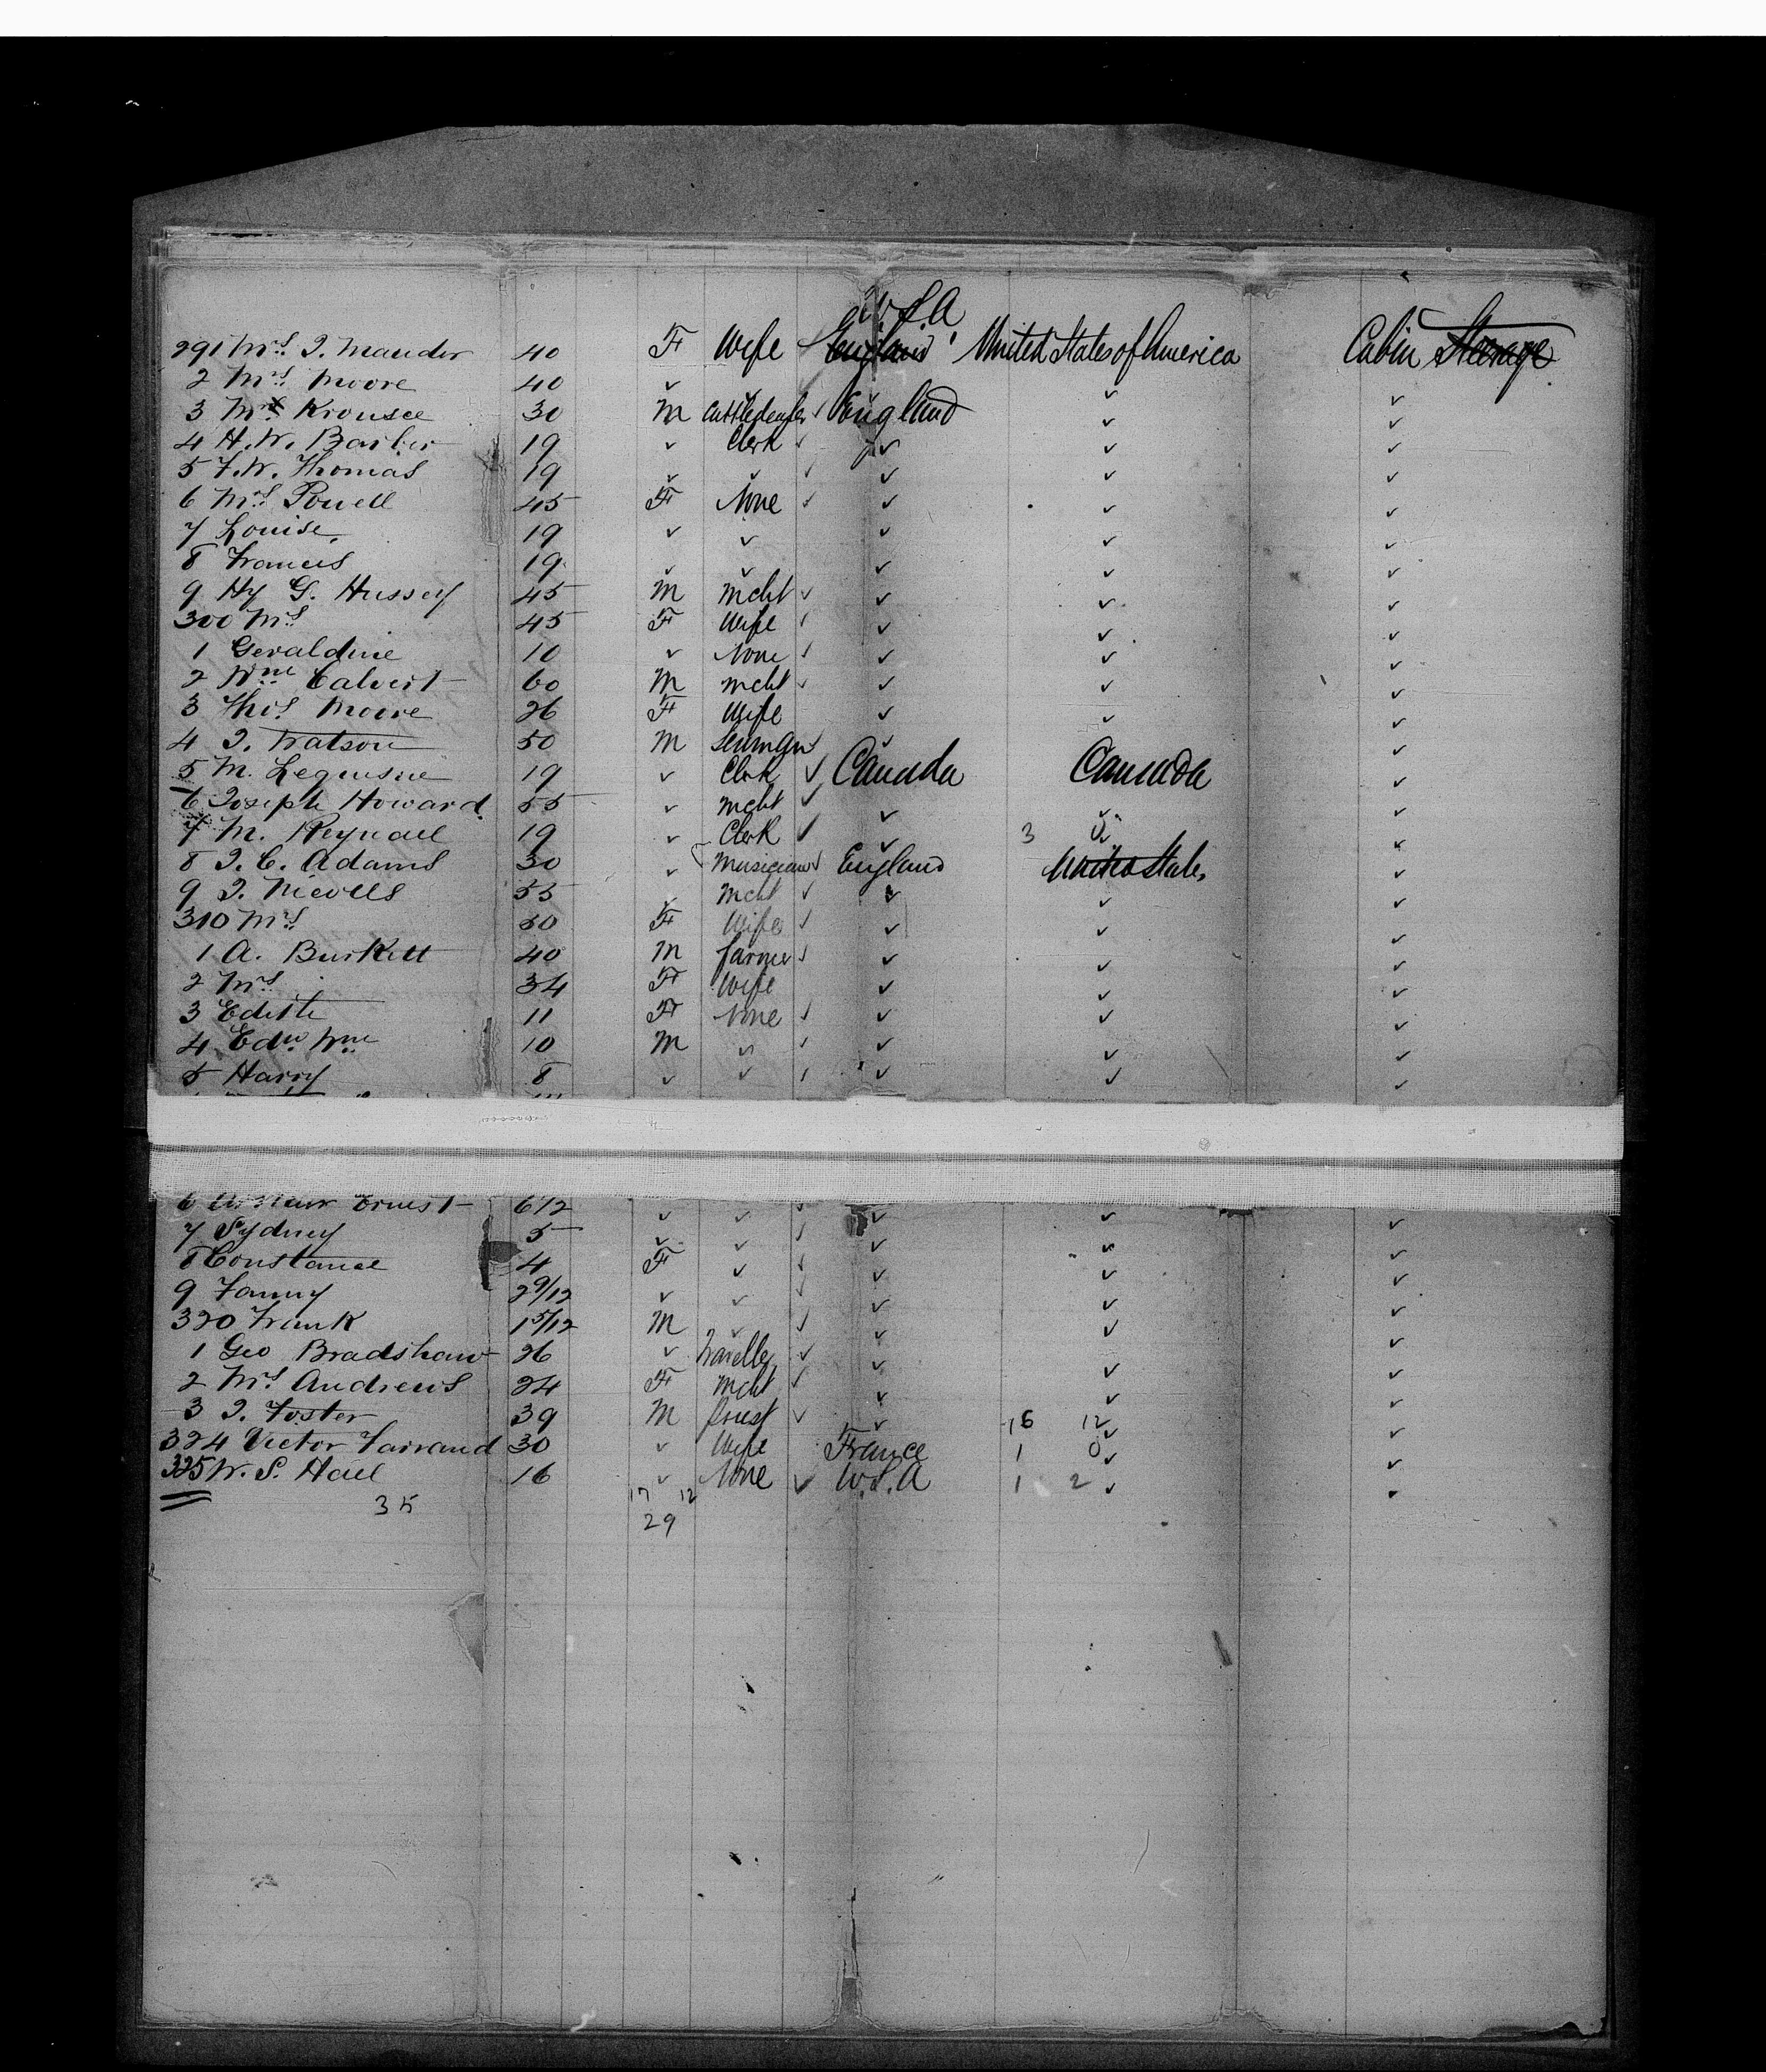 U.S.A
291 Mrs. J. Mander 40 F Wife England United States of America Cabin Steerage
2 Mrs. Moore 40 ✓ ✓ ✓ ✓
3 Mr Krousee 30 M Cattledealer ✓ England ✓ ✓
4 H. W. Barber 19 ✓ Clerk ✓ ✓ ✓ ✓
5 F. W. Thomas 19 ✓ ✓ ✓ ✓ ✓ ✓
6 Mrs. Powell 45 F None ✓ ✓ ✓ ✓
7 Louise 19 ✓ ✓ ✓ ✓ ✓
8 Francis 19 ✓ ✓ ✓ ✓ ✓
9 Hy G. Hussey 45 M mcht ✓ ✓ ✓ ✓
300 Mrs. 45 F Wife ✓ ✓ ✓ ✓
1 Geraldine 10 ✓ None ✓ ✓ ✓ ✓
2 Wm Calvert 60 M mcht ✓ ✓ ✓ ✓
3 Thos. Moore 26 F Wife ✓ ✓ ✓
4 J. Watson 50 M ✓ ✓ ✓
5 M. 19 ✓ Clerk ✓ Canada Canada ✓
6 Joseph Howard 55 ✓ mcht ✓ ✓ ✓ ✓
7 M. Reynall 19 ✓ Clerk ✓ ✓ 3 0 ✓
8 J. C. Adams 30 ✓ Musician ✓ England United States ✓
9 J. Nicolls 55 ✓ mcht ✓ ✓ ✓ ✓
310 Mrs. 50 F Wife ✓ ✓ ✓ ✓
1 A. Burkett 40 M farmer ✓ ✓ ✓ ✓
2 Mrs. 34 F Wife ✓ ✓ ✓
3 Edith 11 F None ✓ ✓ ✓ ✓
4 Edw. Wm 10 M ✓ ✓ ✓ ✓ ✓
5 Harry 8 ✓ ✓ ✓ ✓ ✓ ✓
6 Arthur Ernest 6 1/2 ✓ ✓ ✓ ✓ ✓ ✓
7 Sydney 5 ✓ ✓ ✓ ✓ ✓ ✓
8 Constance 4 F ✓ ✓ ✓ ✓ ✓
9 Fanny 2 9/12 ✓ ✓ ✓ ✓ ✓ ✓
320 Frank 1 5/12 M ✓ ✓ ✓ ✓ ✓
1 Geo Bradshaw 26 ✓ Traveller ✓ ✓ ✓ ✓
2 Mrs. Andrews 24 F mcht ✓ ✓ ✓ ✓
3 J. Foster 39 M Priest ✓ ✓ 16 12 ✓ ✓
324 Victor Farrand 30 ✓ Wife France 1 0 ✓ ✓
325 W. S. Hall 16 ✓ None ✓ U.S.A 1 2 ✓
35 17 12
29